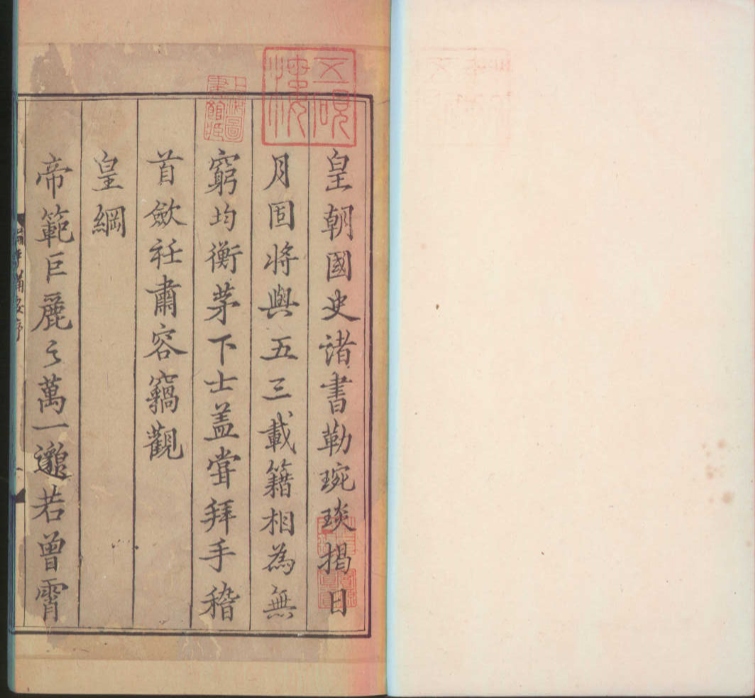 皇朝國史諸書勒琬琰揭日
月固將與五三載籍相為無
窮均衡茅下士盖甞拜手稽
首歛衽肅容竊觀
皇綱
帝範巨麗之萬一邈若曾霄
五硯樓
上海圖書館藏